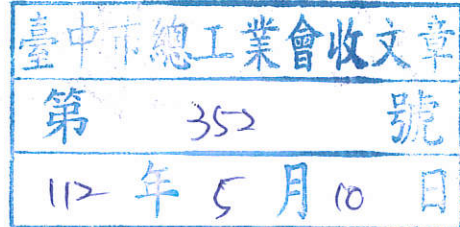 臺中市總工業會收文章
第 352 號
112 年 5 月 10 日